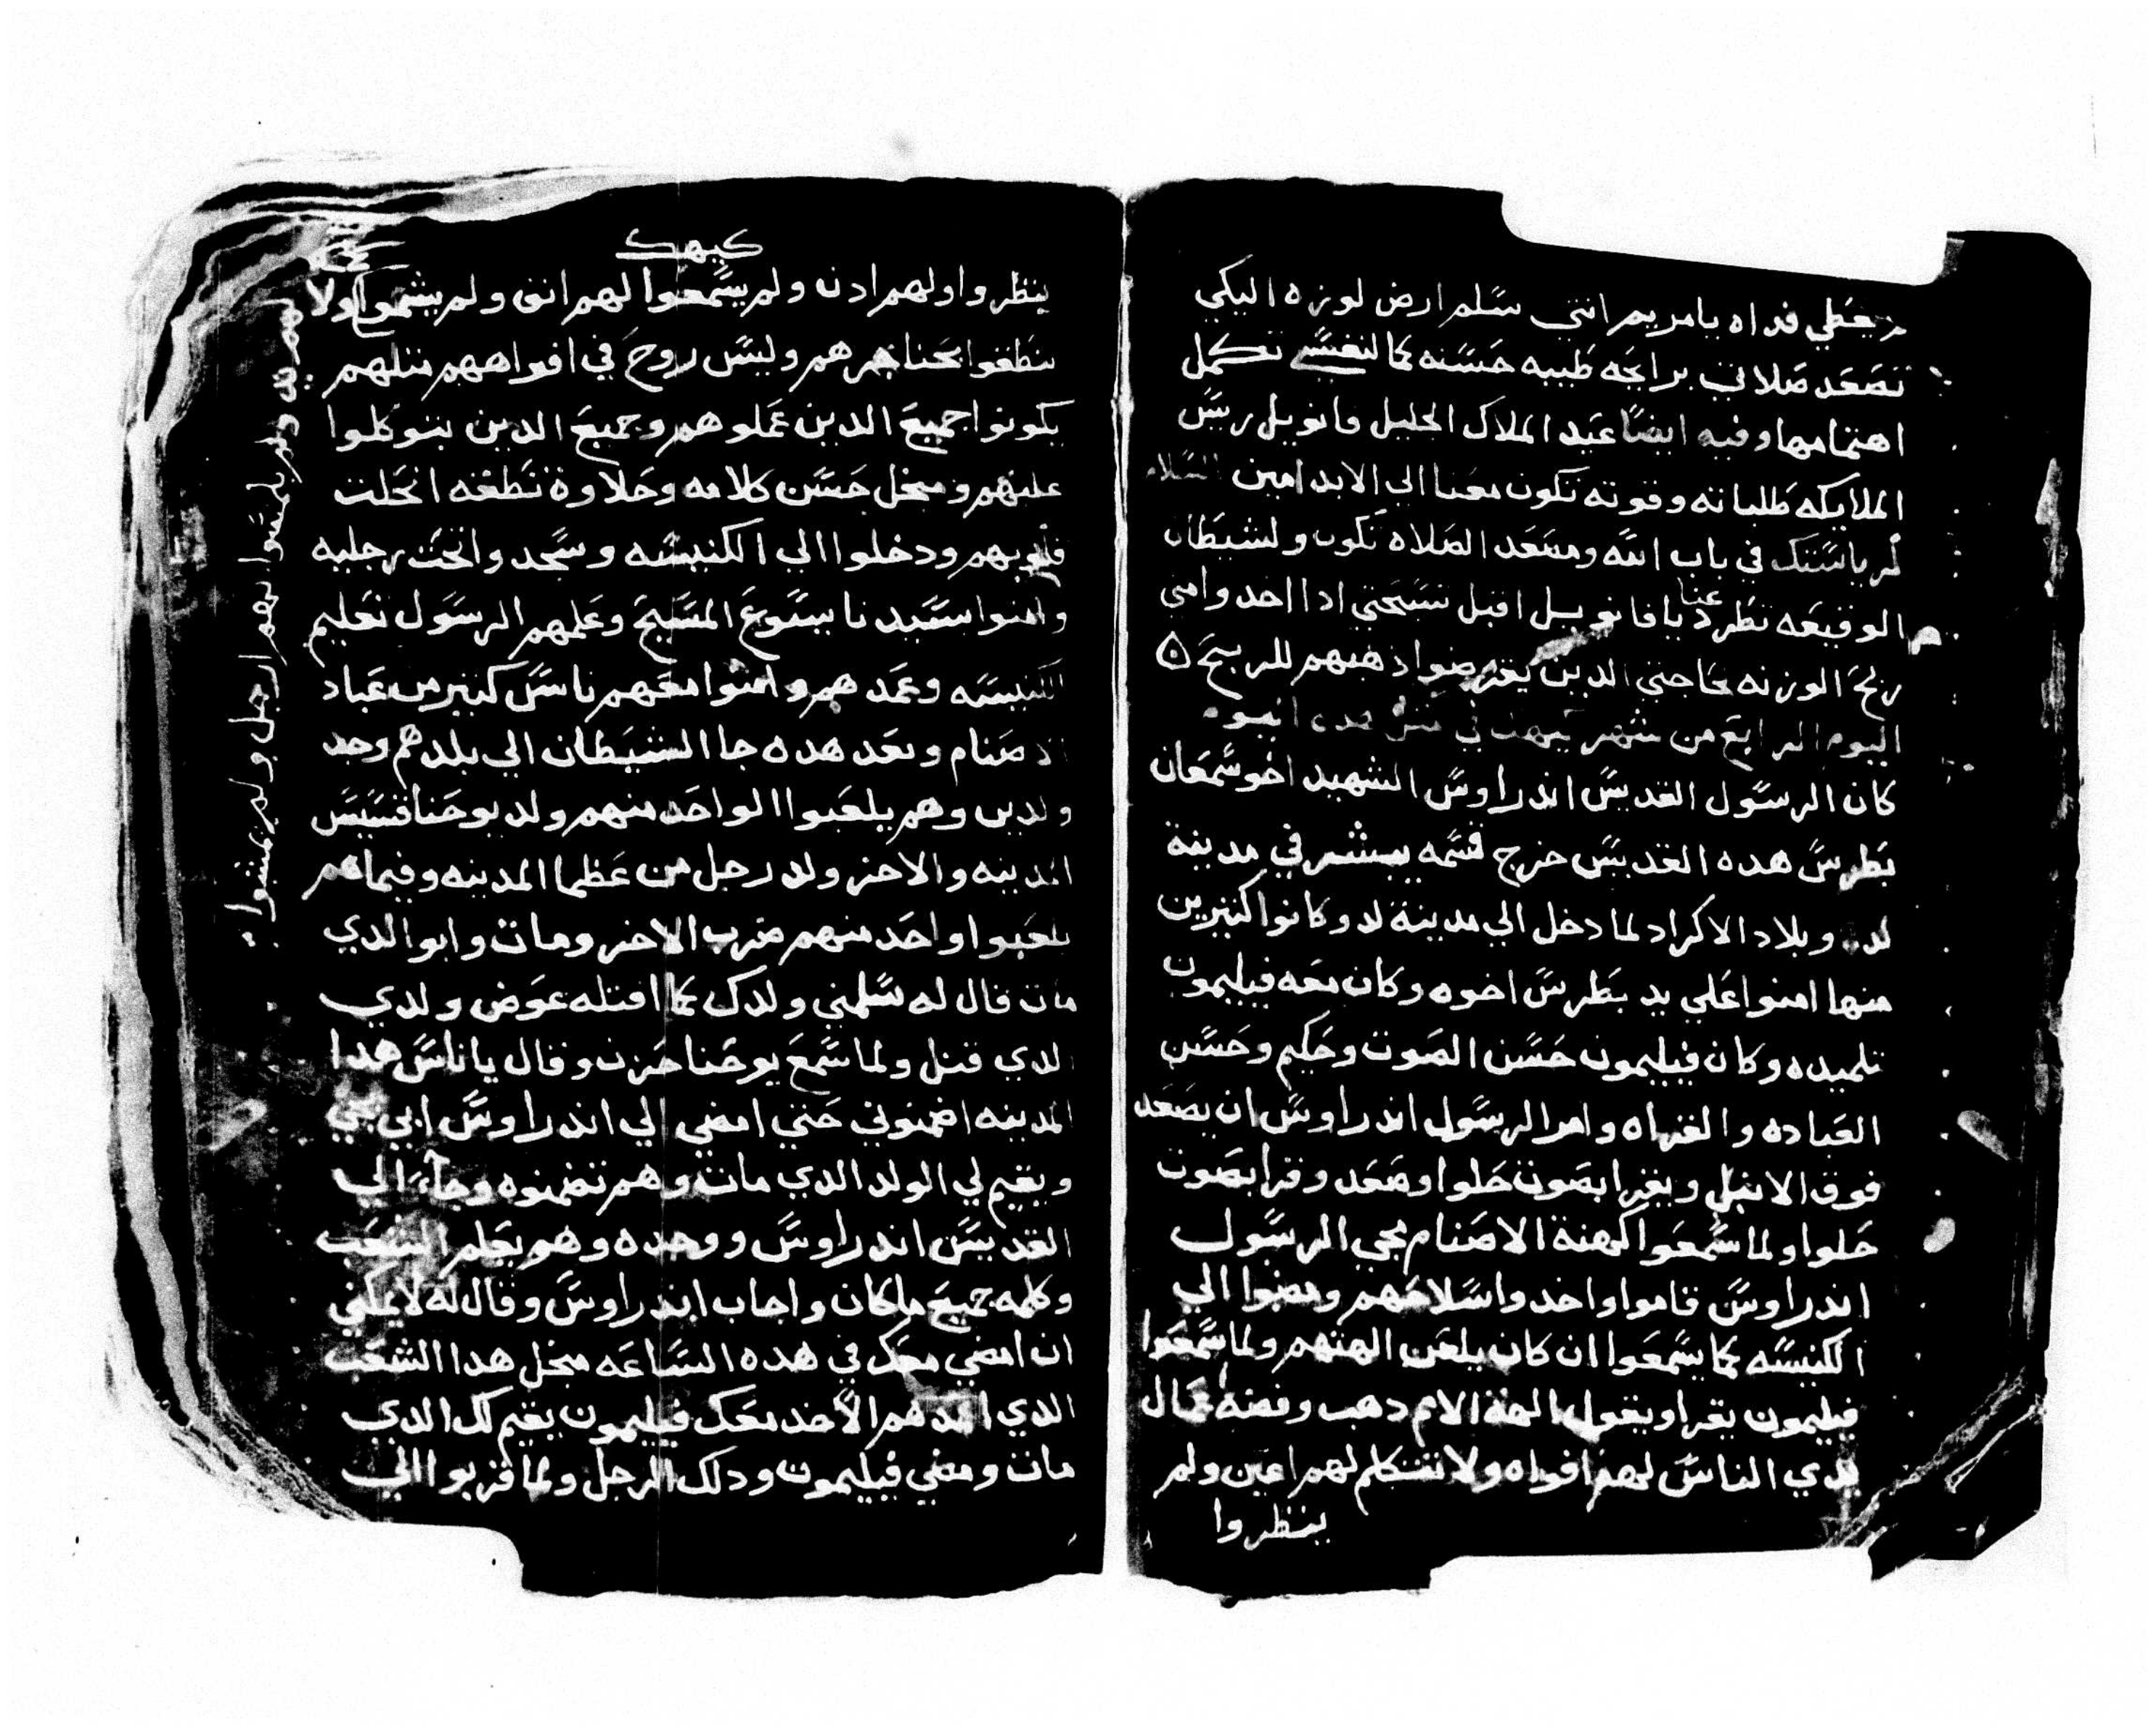 يخطي فداه يا مريم انتي سلم ارض لوزه اليكي
تصعد صلاتي برايحه طيبه حسنه كما لنفسي تكمل
اهتمامها وفيه ايضا عيد الملاك الجليل فانويل ريس
الملايكه طلباته وقوته تكون معنا الي الابد امين السلام
في باب الله ومصعد الصلاه تكون ولشيطان
الوقيعه تطرد عنا يا فانويل اقبل تسبحتي ادا احد وامي
ربح الوزنه بحاجتي الدين يقرضوا دهبهم للربح
اليوم الرابع من شهر كيهك في مثل هدا اليوم
كان الرسول القديس اندراوس الشهيد اخو سمعان
بطرس هده القديس خرج قسمه يبشر في مدينة
لد وبلاد الاكراد لما دخل الي مدينة لد وكانوا كتيرين
منها امنوا علي يد بطرس اخوه وكان معه فيليمون
تلميده وكان فيليمون حسن الصوت وحكيم وحسن
العباده والقراه وامر الرسول اندراوس ان يصعد
فوق الانبل ويقرا بصوت حلوا وصعد وقرا بصوت
حلوا ولما سمعوا كهنة الاصنام بمجي الرسول
اندراوس قاموا واخدوا سلاحهم ومضوا الي
الكنيسه كما يسمعوا ان كان يلعن الهتهم ولما سمعوا
فيليمون يقرا ويقول الهة الامم دهب وفضة عمال
يدي الناس لهم افواه ولا تتكلم لهم اعين ولم
ينظروا
كيهك
ينظروا ولهم ادن ولم يسمعوا لهم انف ولم يشموا ولا
ينطقوا بحناجرهم وليس روح في افواههم متلهم
يكونوا جميع الدين عملوهم وجميع الدين يتوكلوا
عليهم ومنجل حسن كلامه وحلاوة نطقه انحلت
قلوبهم ودخلوا الي الكنيسه وسجدوا تحت رجليه
وامنوا بسيدنا يسوع المسيح وعلمهم الرسول تعليم
الكنيسه وعمدهم وامنوا معهم ناس كتير من عباد
الاصنام وبعد هده جا الشيطان الي بلدهم وجد
ولدين وهم يلعبوا الواحد منهم ولد يوحنا قسيس
المدينه والاخر ولد رجل من عظما المدينه وفيما هم
يلعبوا واحد منهم ضرب الاخر ومات وابوا الدي
مات قال له سلمني ولدك كما اقتله عوض ولدي
الدي قتل ولما سمع يوحنا حزن وقال يا ناس هدا
المدينه اضمنوني حتي امضي الي اندراوس ابي يجي
ويقيم لي الولد الدي مات وهم تضمنوه وجاء الي
القديس اندراوس ووجده وهو يعلم الشعب
وكلمه جميع ما كان واجاب اندراوس وقال له لا يمكني
ان امضي معك في هده الساعه منجل هدا الشعب
الدي اعمدهم الا خد معك فيليمون يقيم لك الدي
مات ومضي فيليمون ودلك الرجل ولما قربوا الي
لهم يد ولم يلمسوا لهم ارجل ولم يمشوا